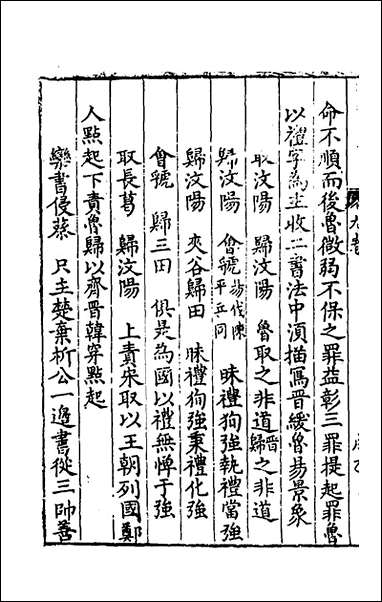 命不順而後魯微弱不保之罪益彰三罪提起罪魯
以禮字為主收二書法中須描寫晉緩魯易景象
取汶陽　歸汶陽　魯取之非道晉歸之非道
歸汶陽　會虢平丘同　昧禮狥強執禮當強
歸汶陽　夾谷歸田　昧禮狥強秉禮化強
會虢　歸三田　俱是為國以禮無憚于強
取長葛　歸汶陽　上責宋取以王朝列國鄭
人點起下責魯歸以齊晉韓穿點起
欒書侵蔡　只主楚棄析公一邊書從三帥善